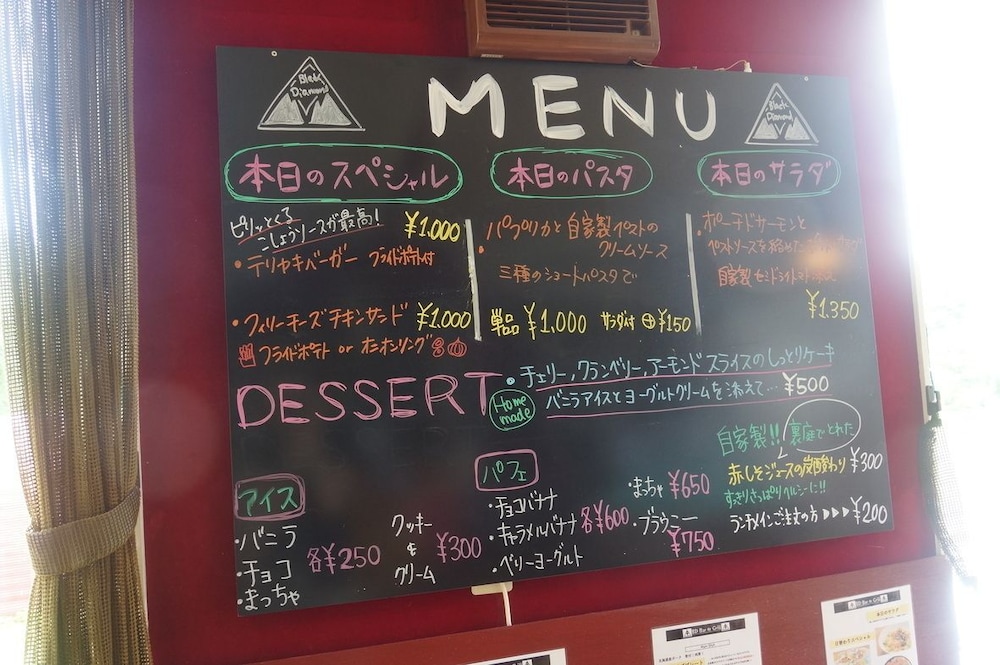 Black
Diamond
MENU
Black
Diamond
本日のスペシャル
ピリッとくる
こしょうソースが最高!
¥1.000
・テリヤキバーガー フライドポテト付
・フィリーチーズチキンサンド ¥1.000
フライドポテト or オニオンリング
本日のパスタ
・パプリカと自家製ペストの
クリームソース
三種のショートパスタで
単品 ¥1,000 サラダ付 ⊕¥150
本日のサラダ
・ポーチドサーモンと
ペストソースを絡めた
自家製セミドライトマト
¥1.350
DESSERT
Home
made
・チェリー,クランベリー,アーモンドスライスのしっとりケーキ
バニラアイスとヨーグルトクリームを添えて… ¥500
アイス
・バニラ
・チョコ
・まっちゃ
各¥250
クッキー
&
クリーム
¥300
パフェ
・チョコバナナ
・キャラメルバナナ
・ベリーヨーグルト
各¥600
・まっちゃ ¥650
・ブラウニー
¥750
自家製!! 裏庭でとれた
赤しそジュースの炭酸割り ¥300
すっきりさっぱりヘルシーに!!
ランチメインご注文の方 ▶▶▶ ¥200